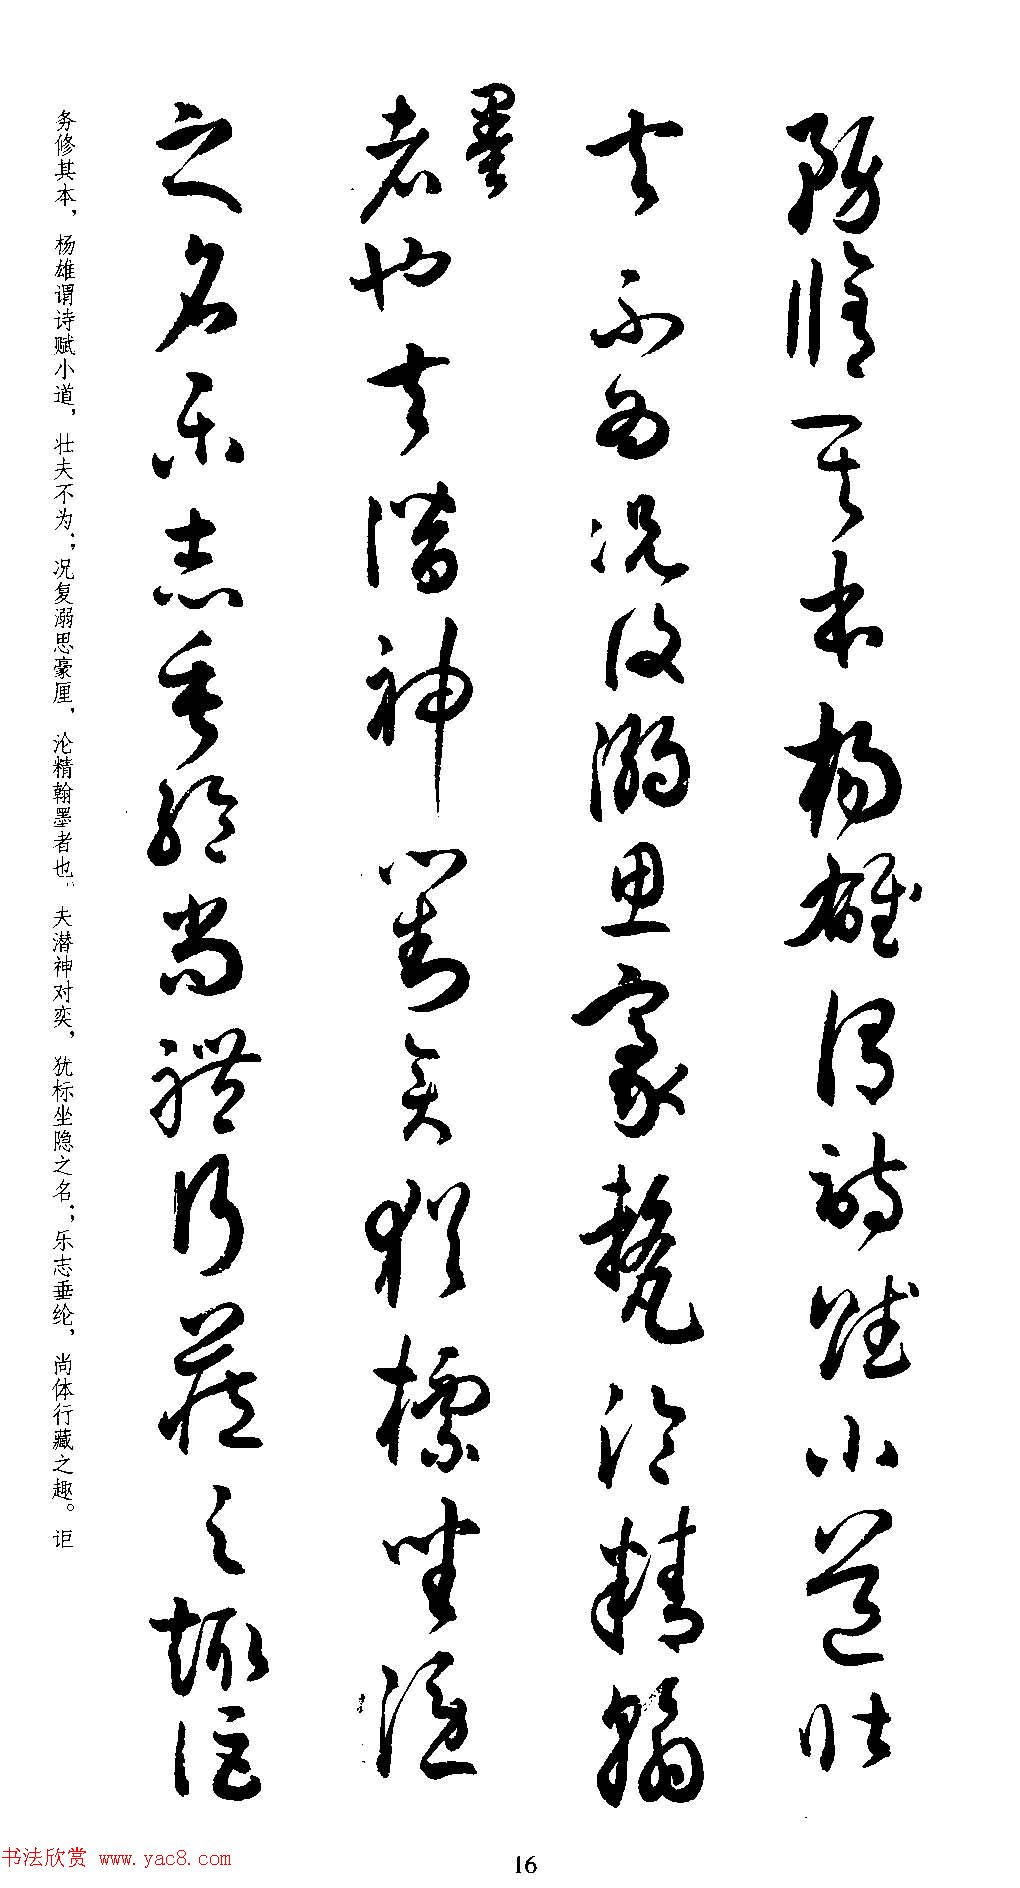 務脩其本楊雄謂詩賦小道壯
夫不為况復溺思豪氂淪精翰
墨
者也夫潛神對奕猶標坐隱
之名樂志垂綸尚體行藏之趣詎
务修其本，杨雄谓诗赋小道，壮夫不为；况复溺思豪厘，沦精翰墨者也。夫潜神对奕，犹标坐隐之名；乐志垂纶，尚体行藏之趣。讵
书法欣赏 www.yac8.com
16